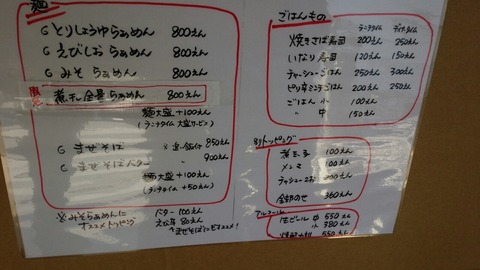 麺
G とりしょゆらぁめん 800えん
G えびしお らぁめん 800えん
G みそ らぁめん 800えん
限定 煮干し らぁめん 800えん
麺大盛 +100えん
(ランチタイム 大盛サービス)
G まぜそば 850えん
G まぜそばバター 900えん
麺大盛 +100えん
(ランチタイム +50えん)
※みそらぁめんに
オススメトッピング
バター 100えん
80えん
↑まぜそばにもオススメ!
ごはんもの
ランチタイム ディナータイム
焼きさば寿司 200えん 250えん
いなり寿司 120えん 150えん
チャーシューごはん 250えん 300えん
ピリ辛ミンチごはん 200えん 250えん
ごはん 小 100えん
〃 中 150えん
別トッピング
煮玉子 100えん
メンマ 100えん
チャーシュー2 200えん
全部のせ 360えん
アルコール
生ビール 中 550えん
小 380えん
550えん